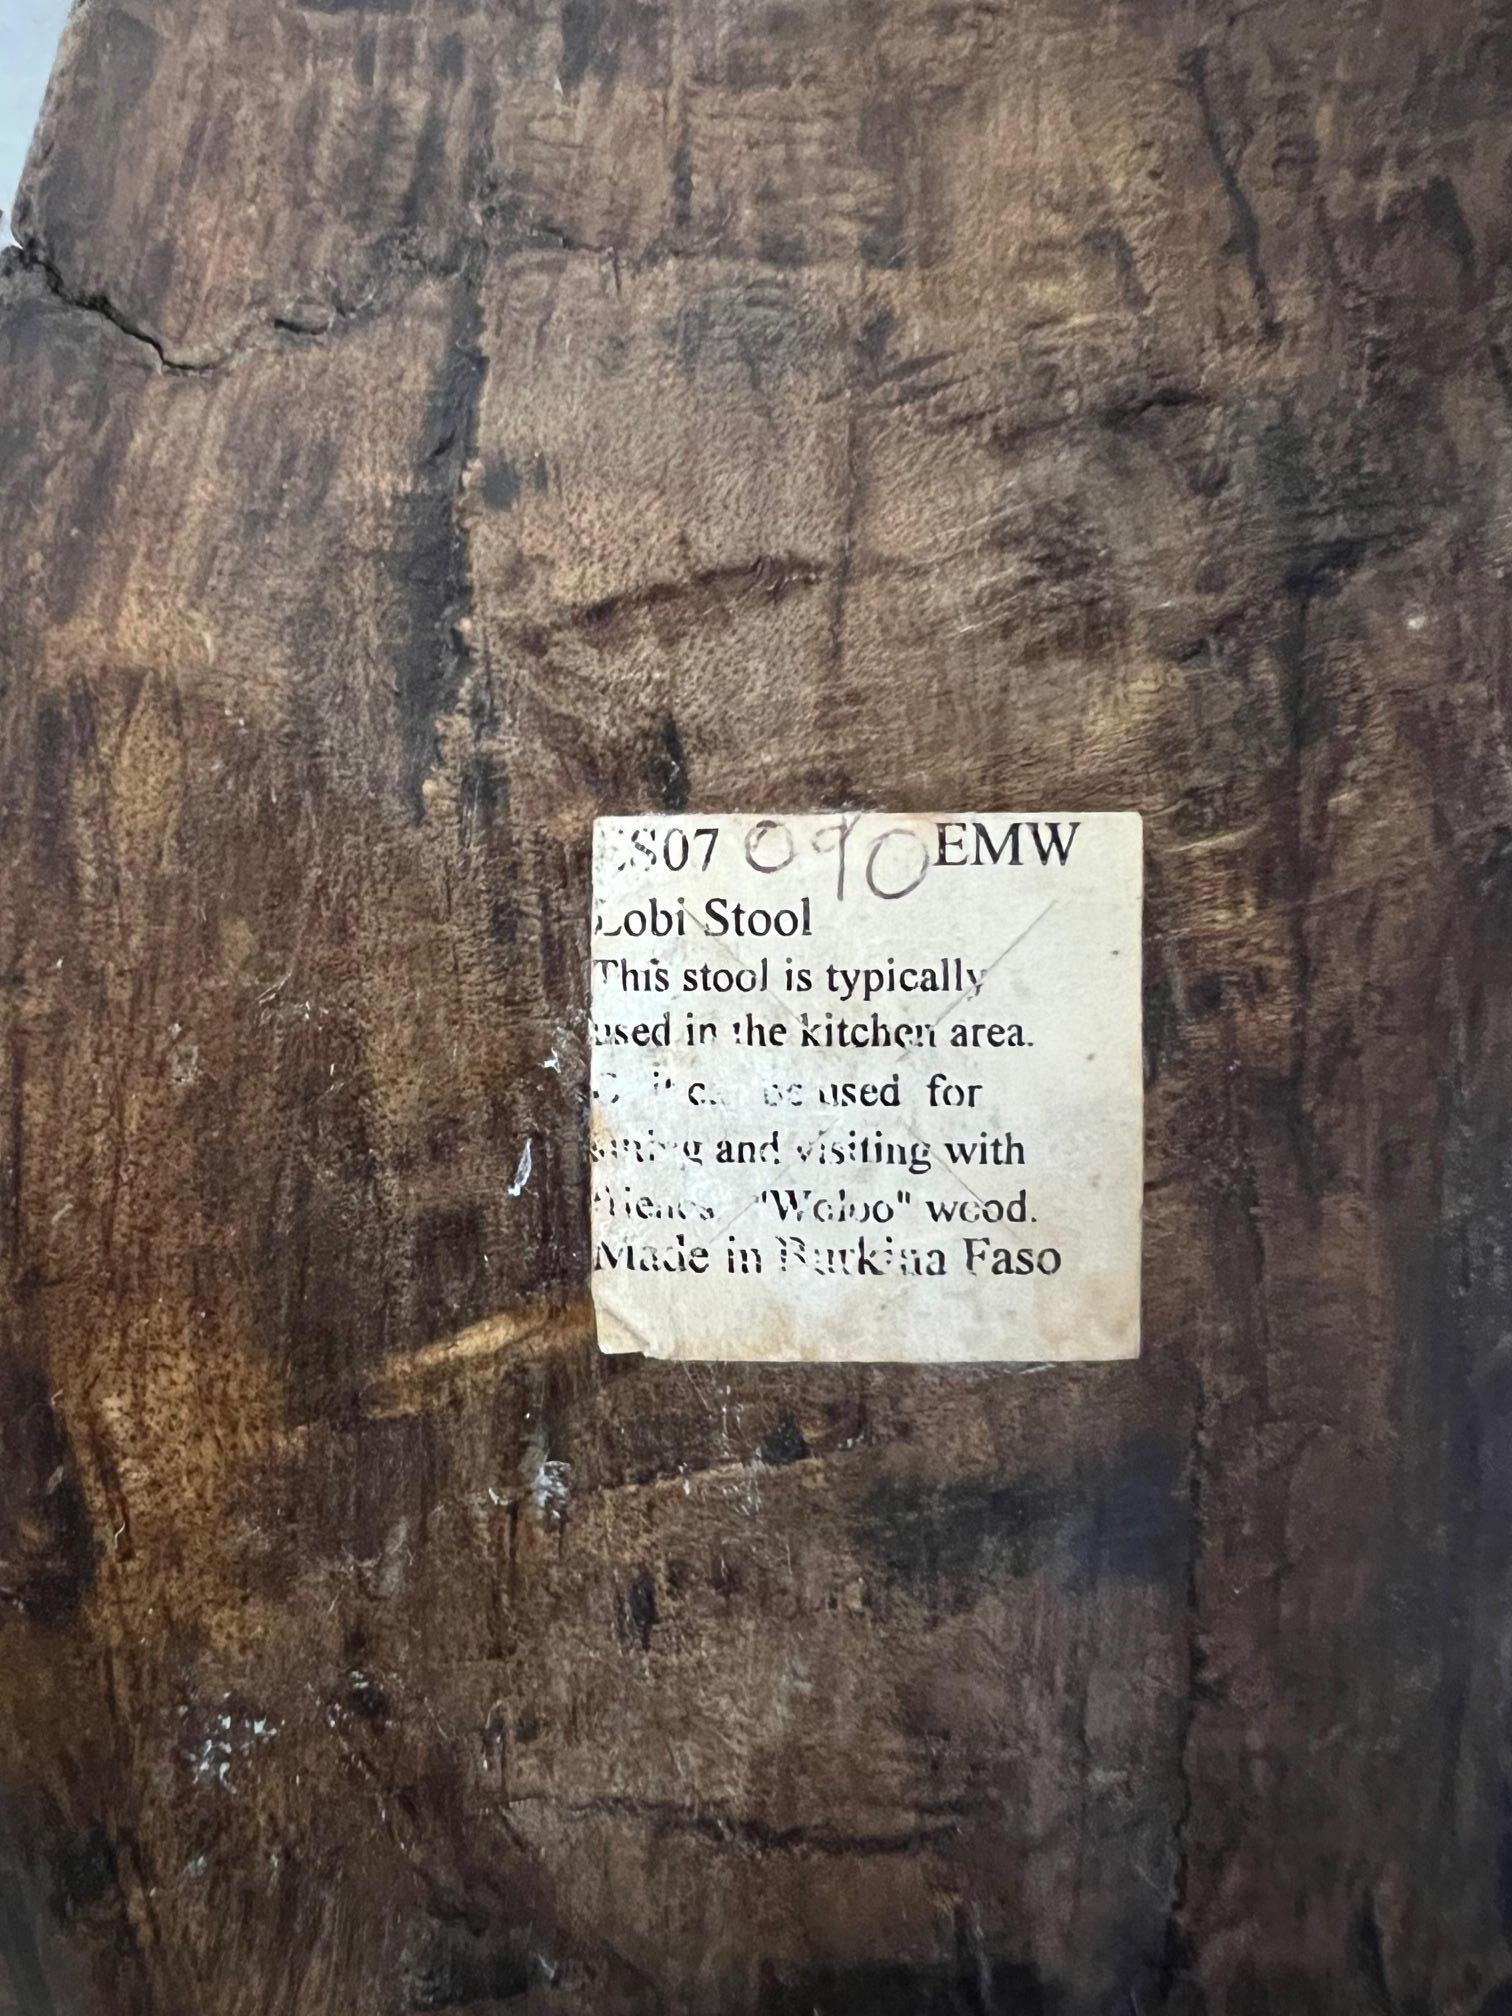 ES07 090 EMW
Lobi Stool
This stool is typically
used in the kitchen area.
Or it can be used for
sitting and visiting with
friends. "Woloo" wood.
Made in Burkina Faso